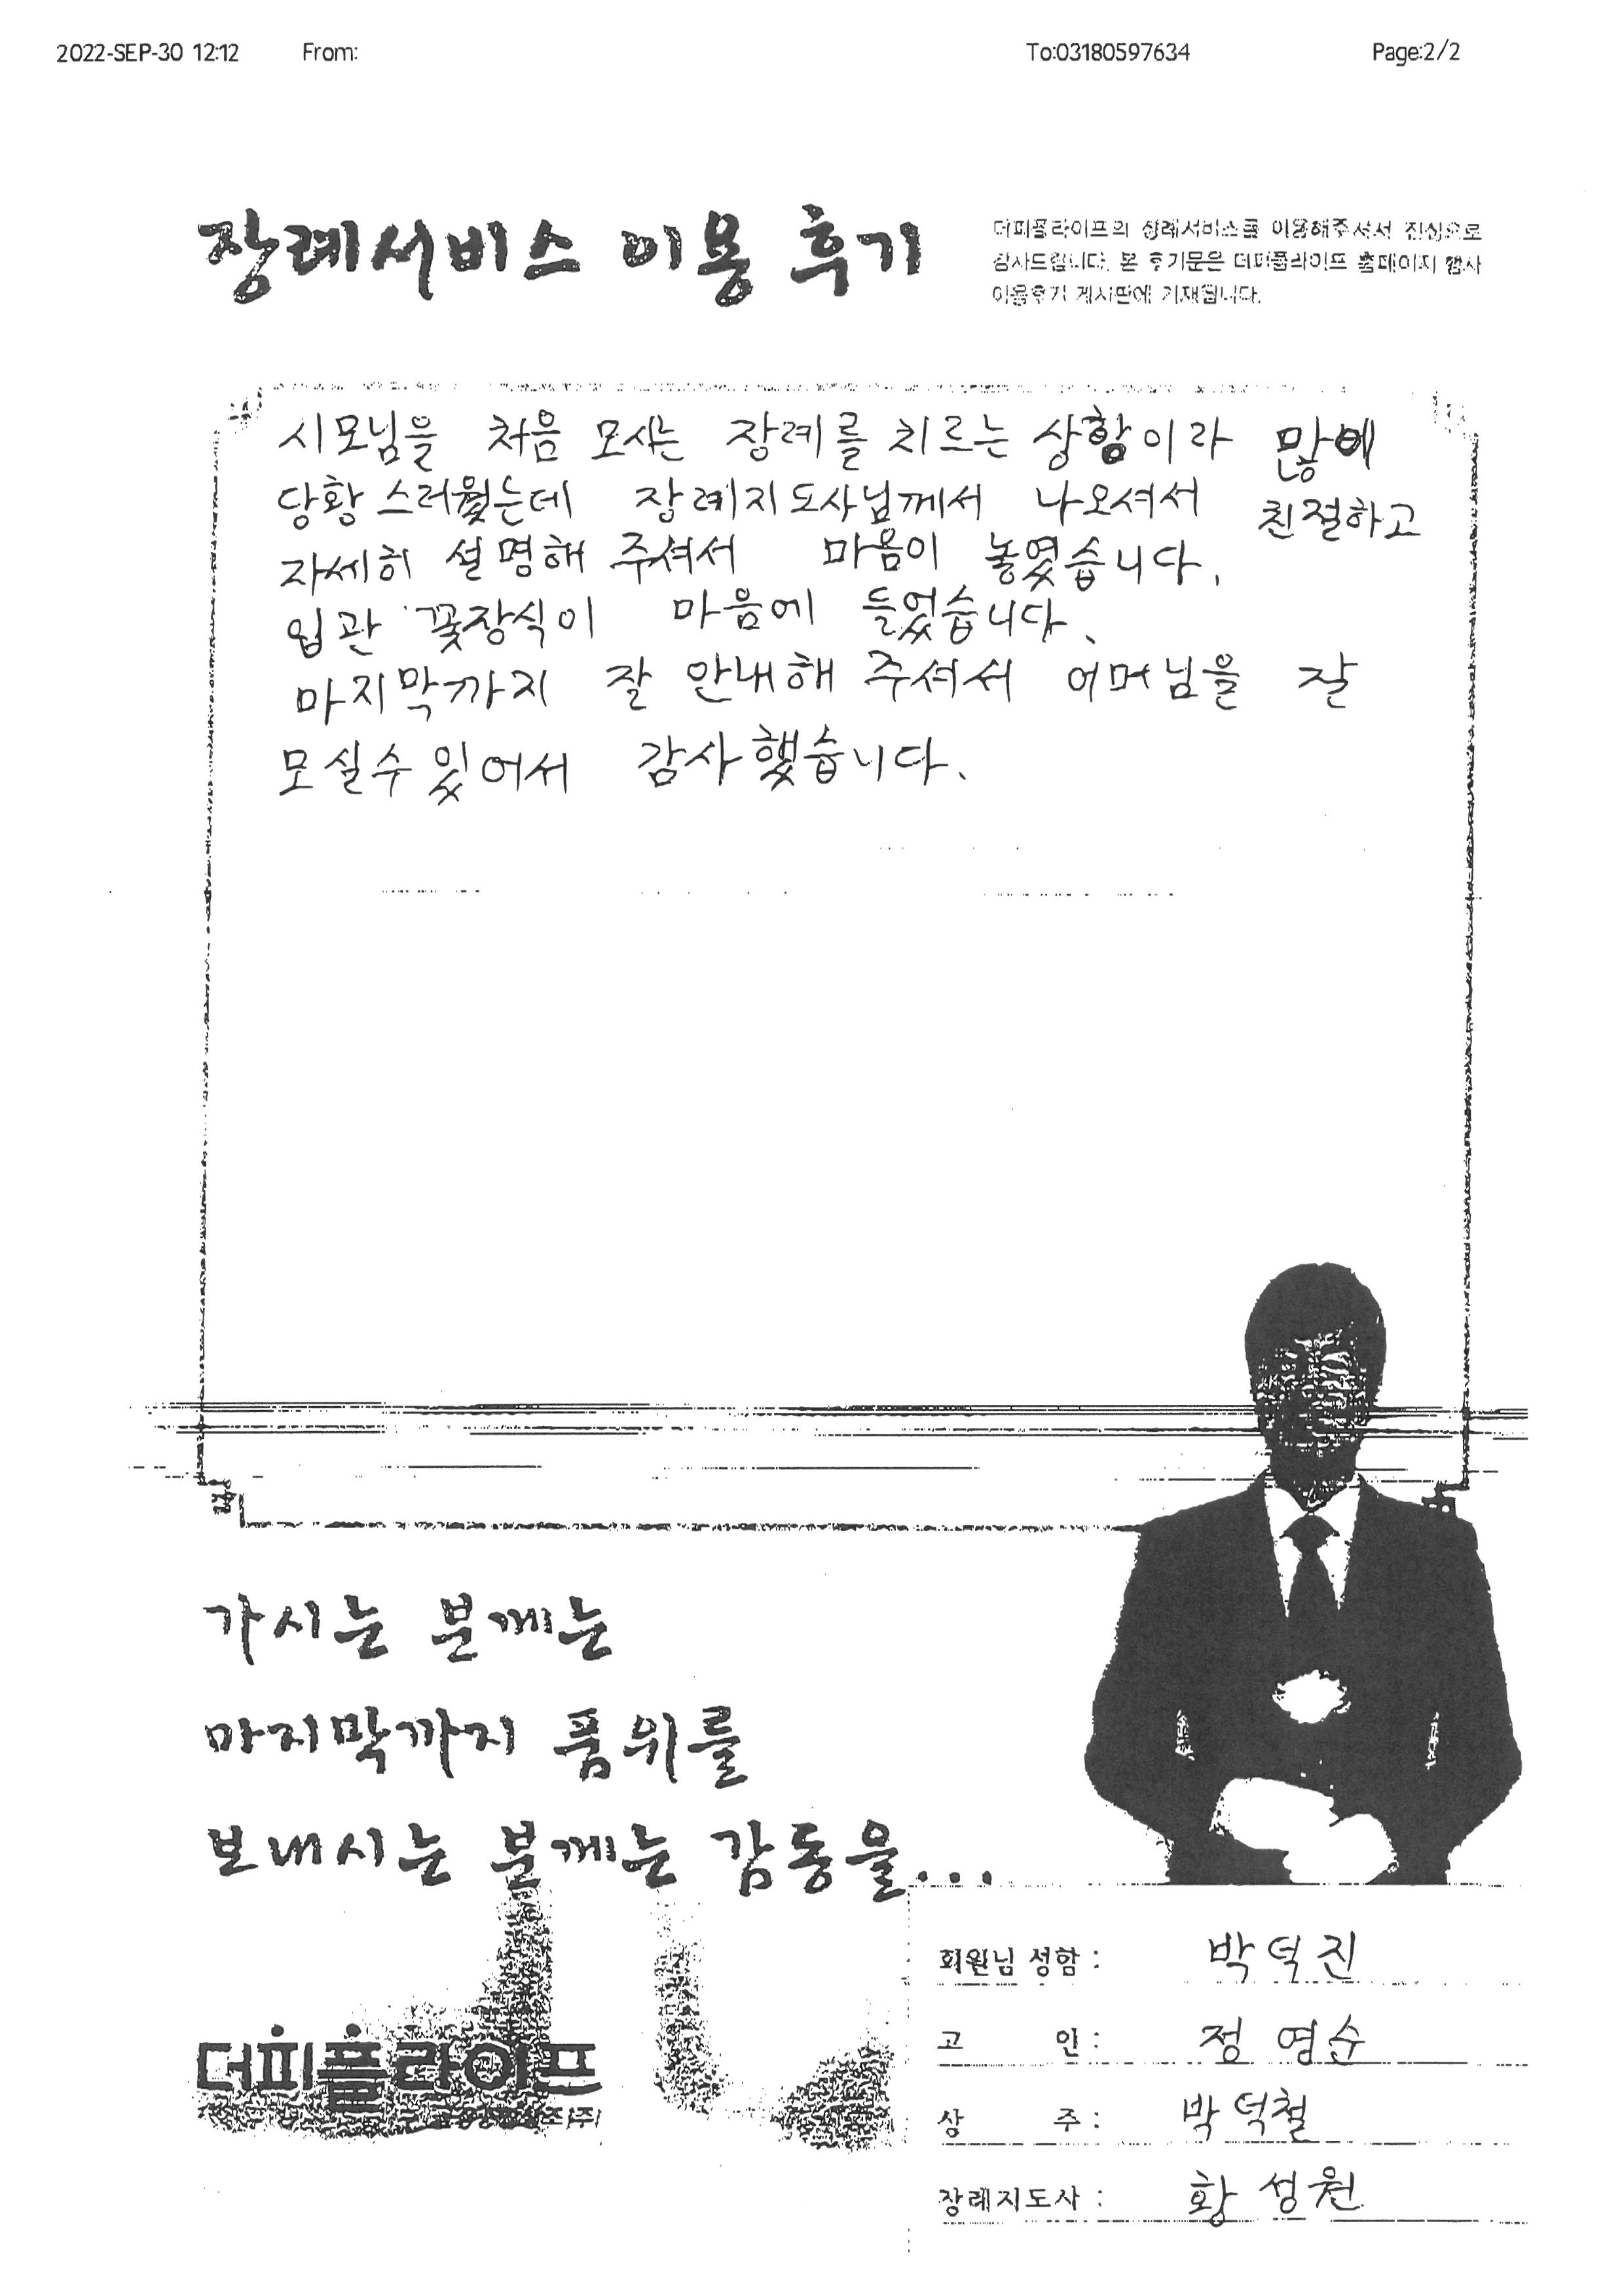 2022-SEP-30 12:12 From: To:03180597634 Page:2/2
장례서비스 이용 후기
더피플라이프의 장례서비스를 이용해주셔서 진심으로
감사드립니다. 본 후기문은 더피플라이프 홈페이지 행사
이용후기 게시판에 기재됩니다.
시모님을 처음 모시는 장례를 치르는 상황이라 많이
당황스러웠는데 장례지도사님께서 나오셔서 친절하고
자세히 설명해 주셔서 마음이 놓였습니다.
입관 꽃장식이 마음에 들었습니다.
마지막까지 잘 안내해 주셔서 어머님을 잘
모실수 있어서 감사했습니다.
가시는 분께는
마지막까지 품위를
보내시는 분께는 감동을...
회원님 성함 : 박덕진
고 인 : 정영순
상 주 : 박덕철
장례지도사 : 황성원
더피플라이프